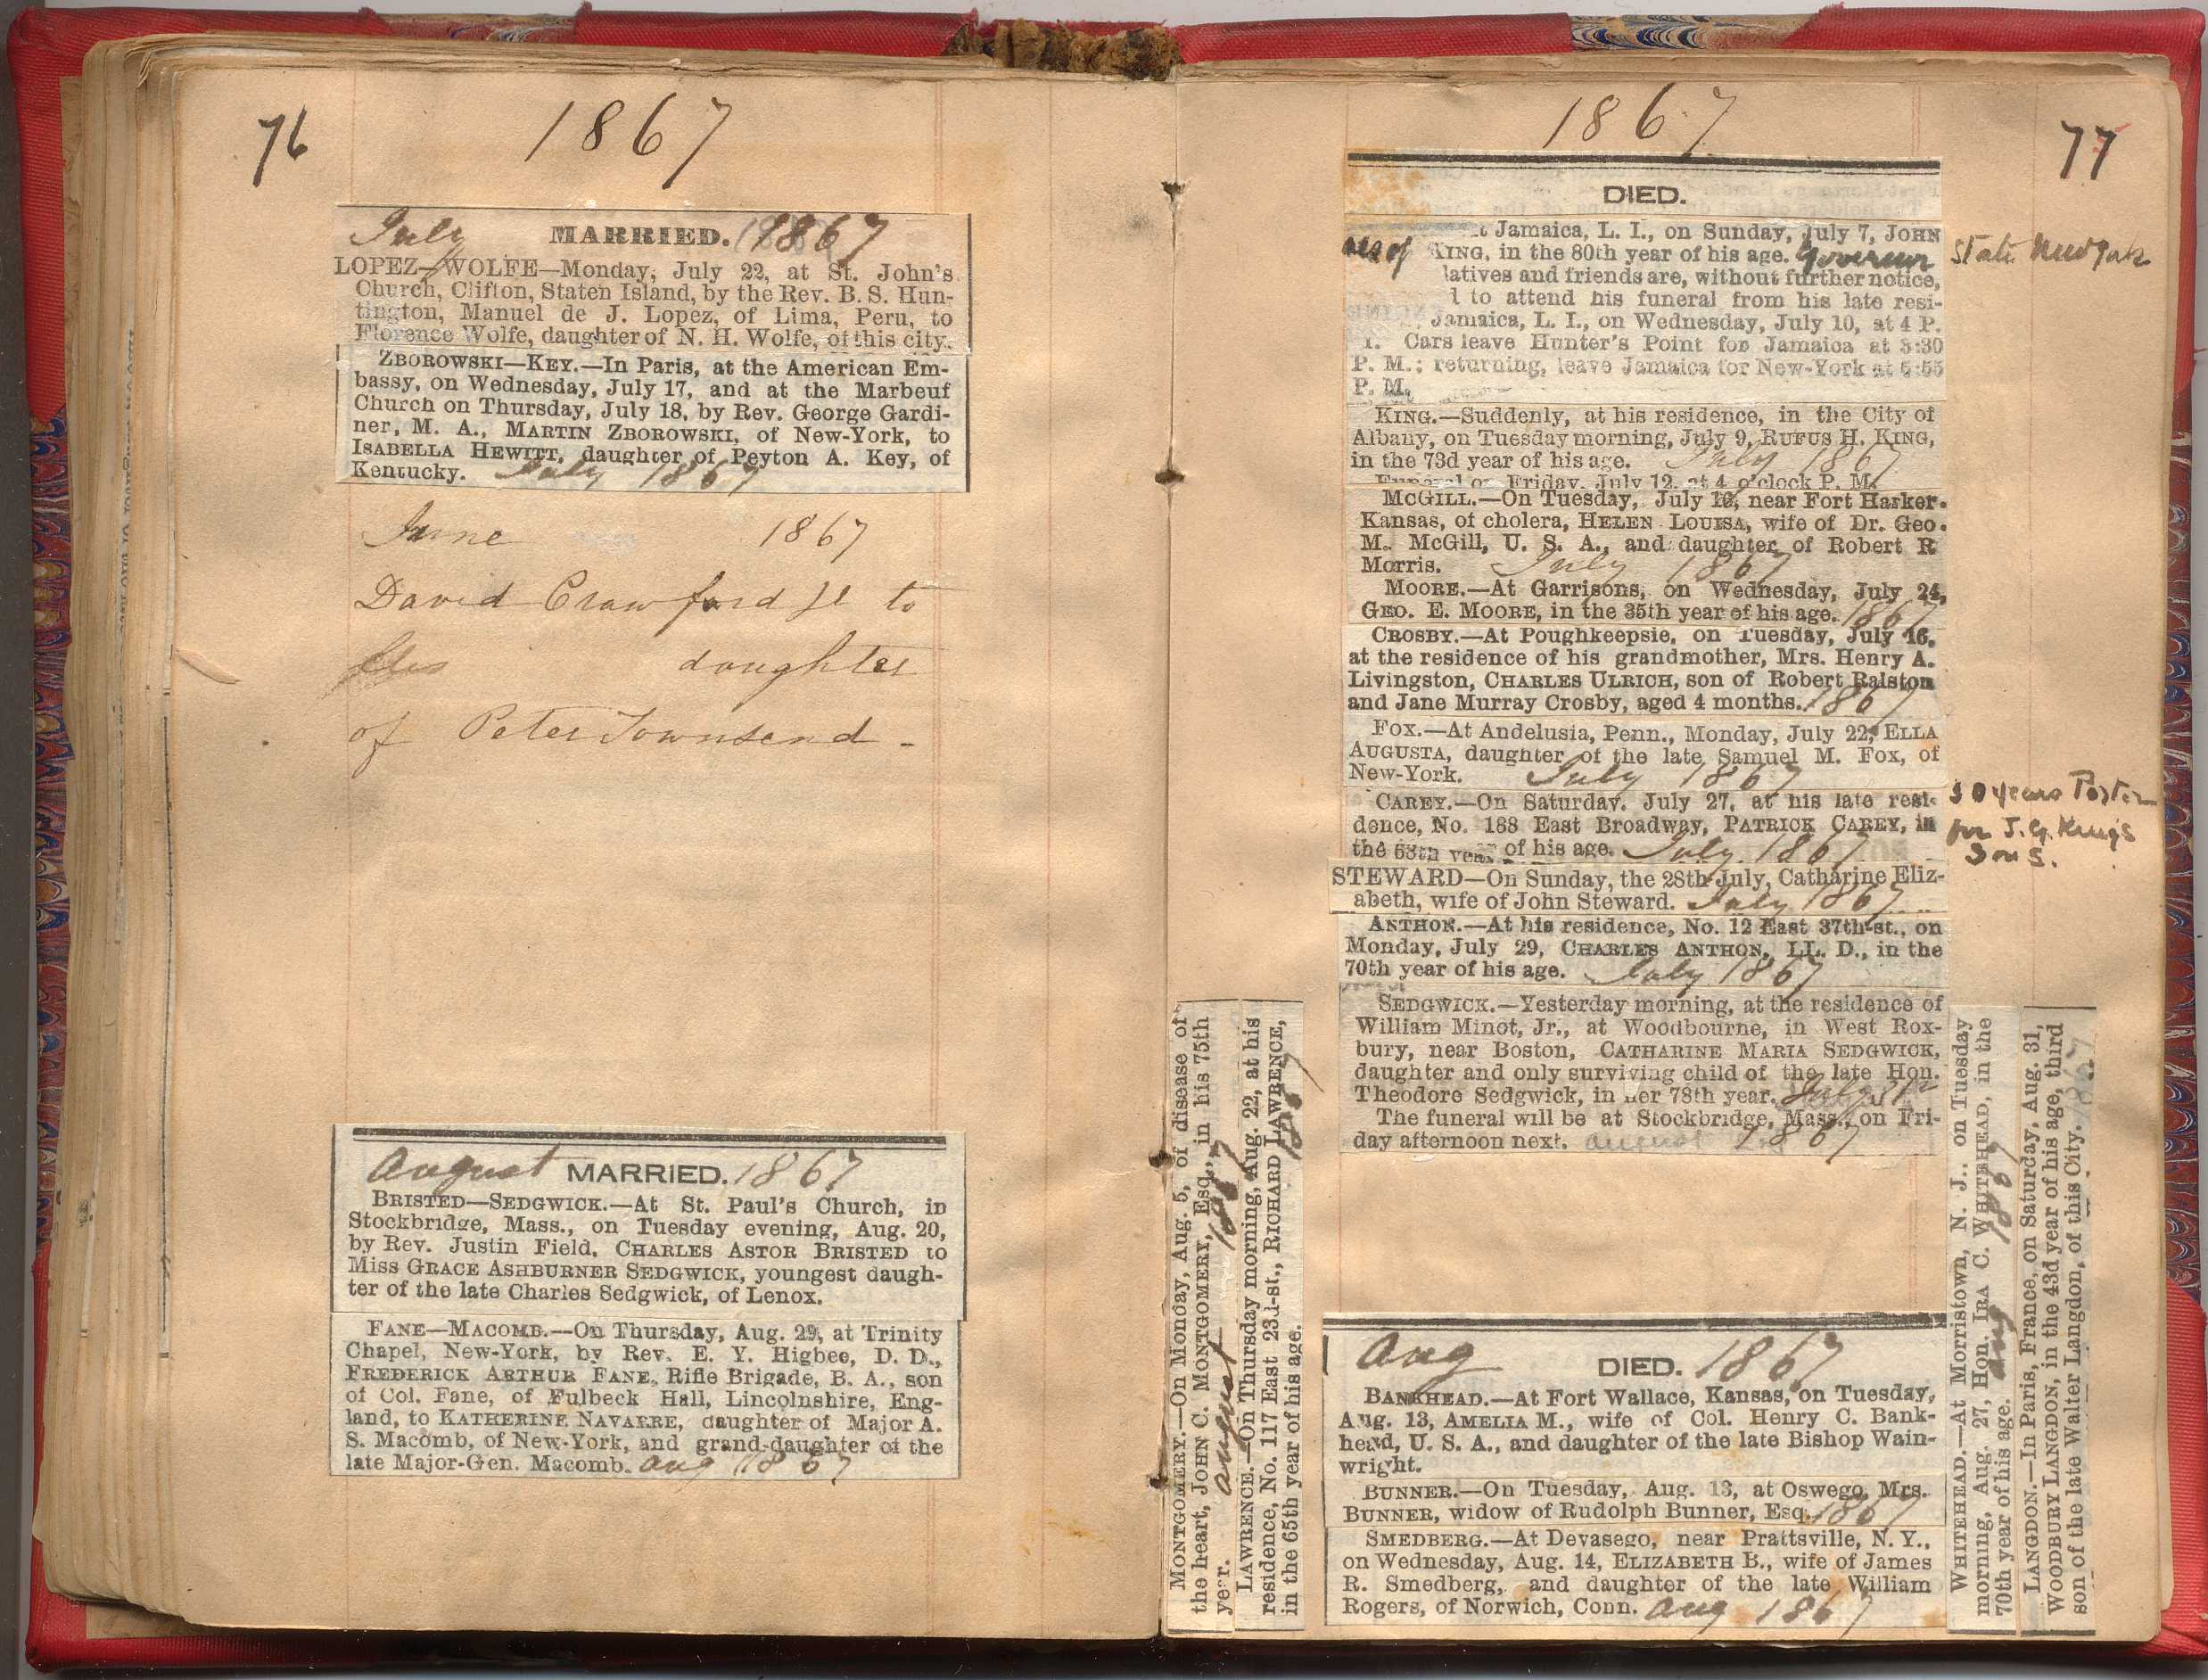 76
1867
July MARRIED. 1867
LOPEZ—WOLFE—Monday, July 22, at St. John's
Church, Clifton, Staten Island, by the Rev. B. S. Hun-
tington, Manuel de J. Lopez, of Lima, Peru, to
Florence Wolfe, daughter of N. H. Wolfe, of this city.
ZBOROWSKI—KEY.—In Paris, at the American Em-
bassy, on Wednesday, July 17, and at the Marbeuf
Church on Thursday, July 18, by Rev. George Gardi-
ner, M. A., MARTIN ZBOROWSKI, of New-York, to
ISABELLA HEWITT, daughter of Peyton A. Key, of
Kentucky. July 1867
June 1867
David Crawford Jr to
daughter
of Peter Townsend -
August MARRIED. 1867
BRISTED—SEDGWICK.—At St. Paul's Church, in
Stockbridge, Mass., on Tuesday evening, Aug. 20,
by Rev. Justin Field, CHARLES ASTOR BRISTED to
Miss GRACE ASHBURNER SEDGWICK, youngest daugh-
ter of the late Charles Sedgwick, of Lenox.
FANE—MACOMB.—On Thursday, Aug. 29, at Trinity
Chapel, New-York, by Rev. E. Y. Higbee, D. D.,
FREDERICK ARTHUR FANE, Rifle Brigade, B. A., son
of Col. Fane, of Fulbeck Hall, Lincolnshire, Eng-
land, to KATHERINE NAVARRE, daughter of Major A.
S. Macomb, of New-York, and grand-daughter of the
late Major-Gen. Macomb. Aug 1867
1867
77
DIED.
Jamaica, L. I., on Sunday, July 7, JOHN
KING, in the 80th year of his age. Governor State New York
latives and friends are, without further notice,
to attend his funeral from his late resi-
Jamaica, L. I., on Wednesday, July 10, at 4 P.
Cars leave Hunter's Point for Jamaica at 3:30
P. M.; returning, leave Jamaica for New-York at 6:55
P. M.
KING.—Suddenly, at his residence, in the City of
Albany, on Tuesday morning, July 9, RUFUS H. KING,
in the 73d year of his age. July 1867
Funeral on Friday, July 12, at 4 o'clock P. M.
MCGILL.—On Tuesday, July 16, near Fort Harker.
Kansas, of cholera, HELEN LOUISA, wife of Dr. Geo.
M. McGill, U. S. A., and daughter of Robert R
Morris. July 1867
MOORE.—At Garrisons, on Wednesday, July 24,
GEO. E. MOORE, in the 35th year of his age. 1867
CROSBY.—At Poughkeepsie, on Tuesday, July 16,
at the residence of his grandmother, Mrs. Henry A.
Livingston, CHARLES ULRICH, son of Robert Ralston
and Jane Murray Crosby, aged 4 months. 1867
FOX.—At Andelusia, Penn., Monday, July 22, ELLA
AUGUSTA, daughter of the late Samuel M. Fox, of
New-York. July 1867
CAREY.—On Saturday, July 27, at his late resi-
dence, No. 188 East Broadway, PATRICK CAREY, in
the 63th year of his age. July 1867
years Porter
for J. G. King's
Sons.
STEWARD—On Sunday, the 28th July, Catharine Eliz-
abeth, wife of John Steward. July 1867
ANTHON.—At his residence, No. 12 East 37th-st., on
Monday, July 29, CHARLES ANTHON, LL. D., in the
70th year of his age. July 1867
SEDGWICK.—Yesterday morning, at the residence of
William Minot, Jr., at Woodbourne, in West Rox-
bury, near Boston, CATHARINE MARIA SEDGWICK,
daughter and only surviving child of the late Hon.
Theodore Sedgwick, in her 78th year. July 31
The funeral will be at Stockbridge, Mass., on Fri-
day afternoon next. August 1867
MONTGOMERY.—On Monday, Aug. 5, of disease of
the heart, JOHN C. MONTGOMERY, Esq., in his 75th
year. August 1867
LAWRENCE.—On Thursday morning, Aug. 22, at his
residence, No. 117 East 23d-st., RICHARD LAWRENCE,
in the 65th year of his age. 1867
Aug DIED. 1867
BANKHEAD.—At Fort Wallace, Kansas, on Tuesday,
Aug. 13, AMELIA M., wife of Col. Henry C. Bank-
head, U. S. A., and daughter of the late Bishop Wain-
wright.
BUNNER.—On Tuesday, Aug. 13, at Oswego, Mrs.
BUNNER, widow of Rudolph Bunner, Esq. 1867
SMEDBERG.—At Devasego, near Prattsville, N. Y.,
on Wednesday, Aug. 14, ELIZABETH B., wife of James
R. Smedberg, and daughter of the late William
Rogers, of Norwich, Conn. Aug 1867
WHITEHEAD.—At Morristown, N. J., on Tuesday
morning, Aug. 27, Hon. IRA C. WHITEHEAD, in the
70th year of his age. Aug 1867
LANGDON.—In Paris, France, on Saturday, Aug. 31,
WOODBURY LANGDON, in the 43d year of his age, third
son of the late Walter Langdon, of this City. 1867